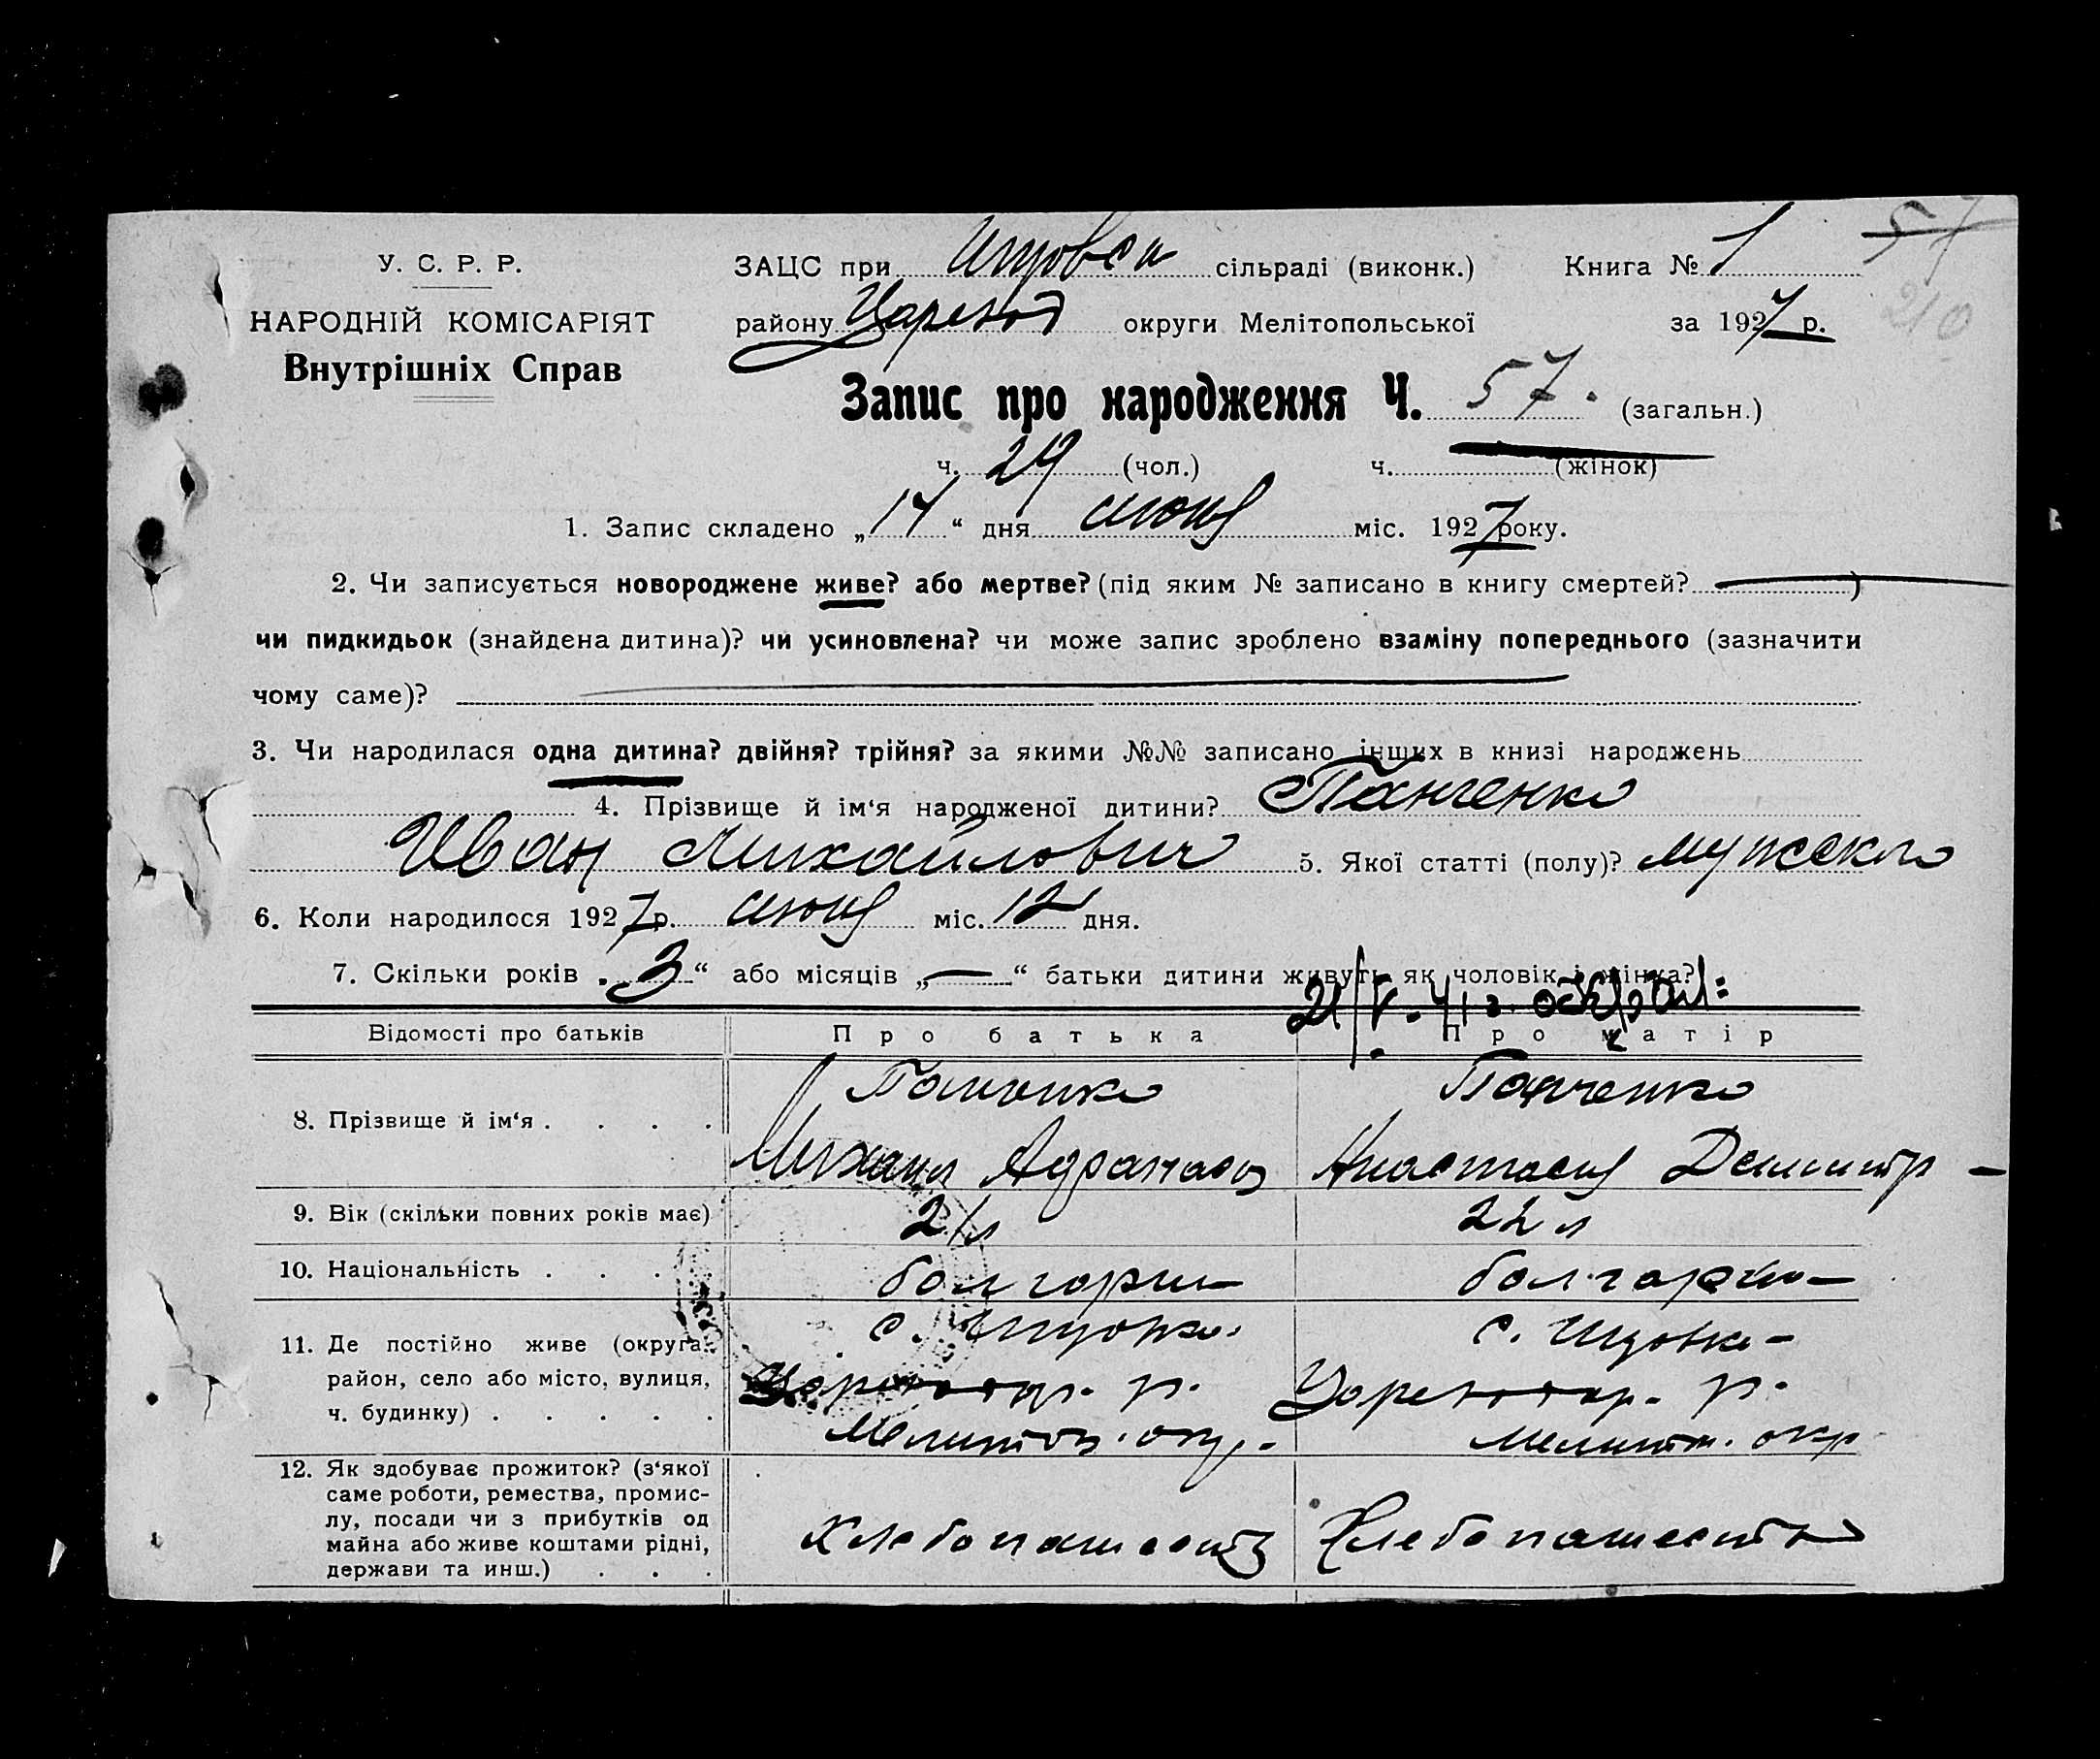 У. С. Р. Р.
НАРОДНІЙ КОМІСАРІЯТ
Внутрішніх Справ
ЗАЦС при сільраді (виконк.)
Книга № 1
57
району округи Мелітопольської
за 1927 р.
210
Запис про народження Ч. 57. (загальн.)
ч. 29 (чол.) ч. (жінок)
1. Запис складено „14“ дня июня міс. 1927 року.
2. Чи записується новороджене живе? або мертве? (під яким № записано в книгу смертей? )
чи пидкидьок (знайдена дитина)? чи усиновлена? чи може запис зроблено взаміну попереднього (зазначити
чому саме)?
3. Чи народилася одна дитина? двійня? трійня? за якими №№ записано інших в книзі народжень
4. Прізвище й ім‘я народженої дитини? Панченко
Иван Михайлович 5. Якої статті (полу)? мужского
6. Коли народилося 1927 р. июня міс. 12 дня.
7. Скільки років „3“ або місяців „—“ батьки дитини живуть як чоловік і жінка?
Відомості про батьків
Про батька
Про матір
8. Прізвище й ім‘я . . . .
Панченко
Михаил
Панченко
Анастасия Демитр-
9. Вік (скільки повних років має)
21 л
22 л
10. Національність . . .
болгарин
болгарка
11. Де постійно живе (округа,
район, село або місто, вулиця,
ч. будинку) . . . . .
с.
р.
с.
р.
Мелитоп. окр.
Мелитоп. окр
12. Як здобуває прожиток? (з‘якої
саме роботи, ремества, промис-
лу, посади чи з прибутків од
майна або живе коштами рідні,
держави та инш.) . . .
Хлебопашеств
Хлебопашеств